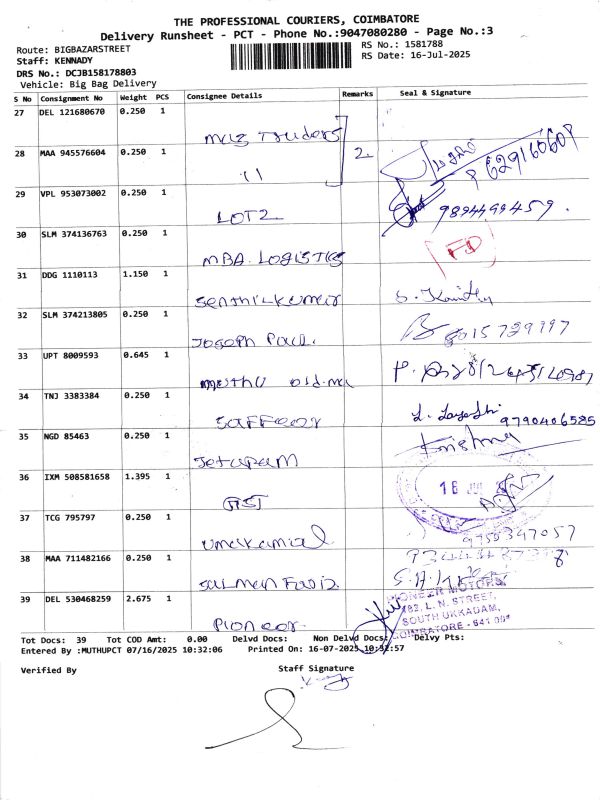 THE PROFESSIONAL COURIERS, COIMBATORE
Delivery Runsheet - PCT - Phone No.:9047080280 - Page No.:3
Route: BIGBAZARSTREET
RS No.: 1581788
Staff: KENNADY
RS Date: 16-Jul-2025
DRS No.: DCJB158178803
Vehicle: Big Bag Delivery
S No Consignment No Weight PCS Consignee Details Remarks Seal & Signature
27 DEL 121680670 0.250 1
28 MAA 945576604 0.250 1 11 2.
6291606
29 VPL 953073002 0.250 1 LOT2 9894499459.
30 SLM 374136763 0.250 1 MBA. LOGISTICS
31 DDG 1110113 1.150 1 Senthilkumar
32 SLM 374213805 0.250 1 Joseph Paul. 8015739997
33 UPT 8009593 0.645 1
34 TNJ 3383384 0.250 1 9790406585
35 NGD 85463 0.250 1 Krishna
36 IXM 508581658 1.395 1 GST
37 TCG 795797 0.250 1 9750347057
38 MAA 711482166 0.250 1 Salman Fariz
39 DEL 530468259 2.675 1 Pioneer
PIONEER MOTORS
182, L. N. STREET,
SOUTH UKKADAM,
COIMBATORE - 641 001
Tot Docs: 39 Tot COD Amt: 0.00 Delvd Docs: Non Delvd Docs: Delvy Pts:
Entered By :MUTHUPCT 07/16/2025 10:32:06 Printed On: 16-07-2025 10:32:57
Verified By Staff Signature